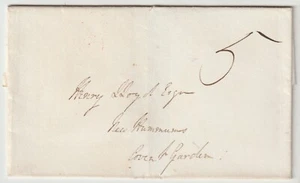 5
Henry Lloyd Esqr
New Hummums
Covent Garden